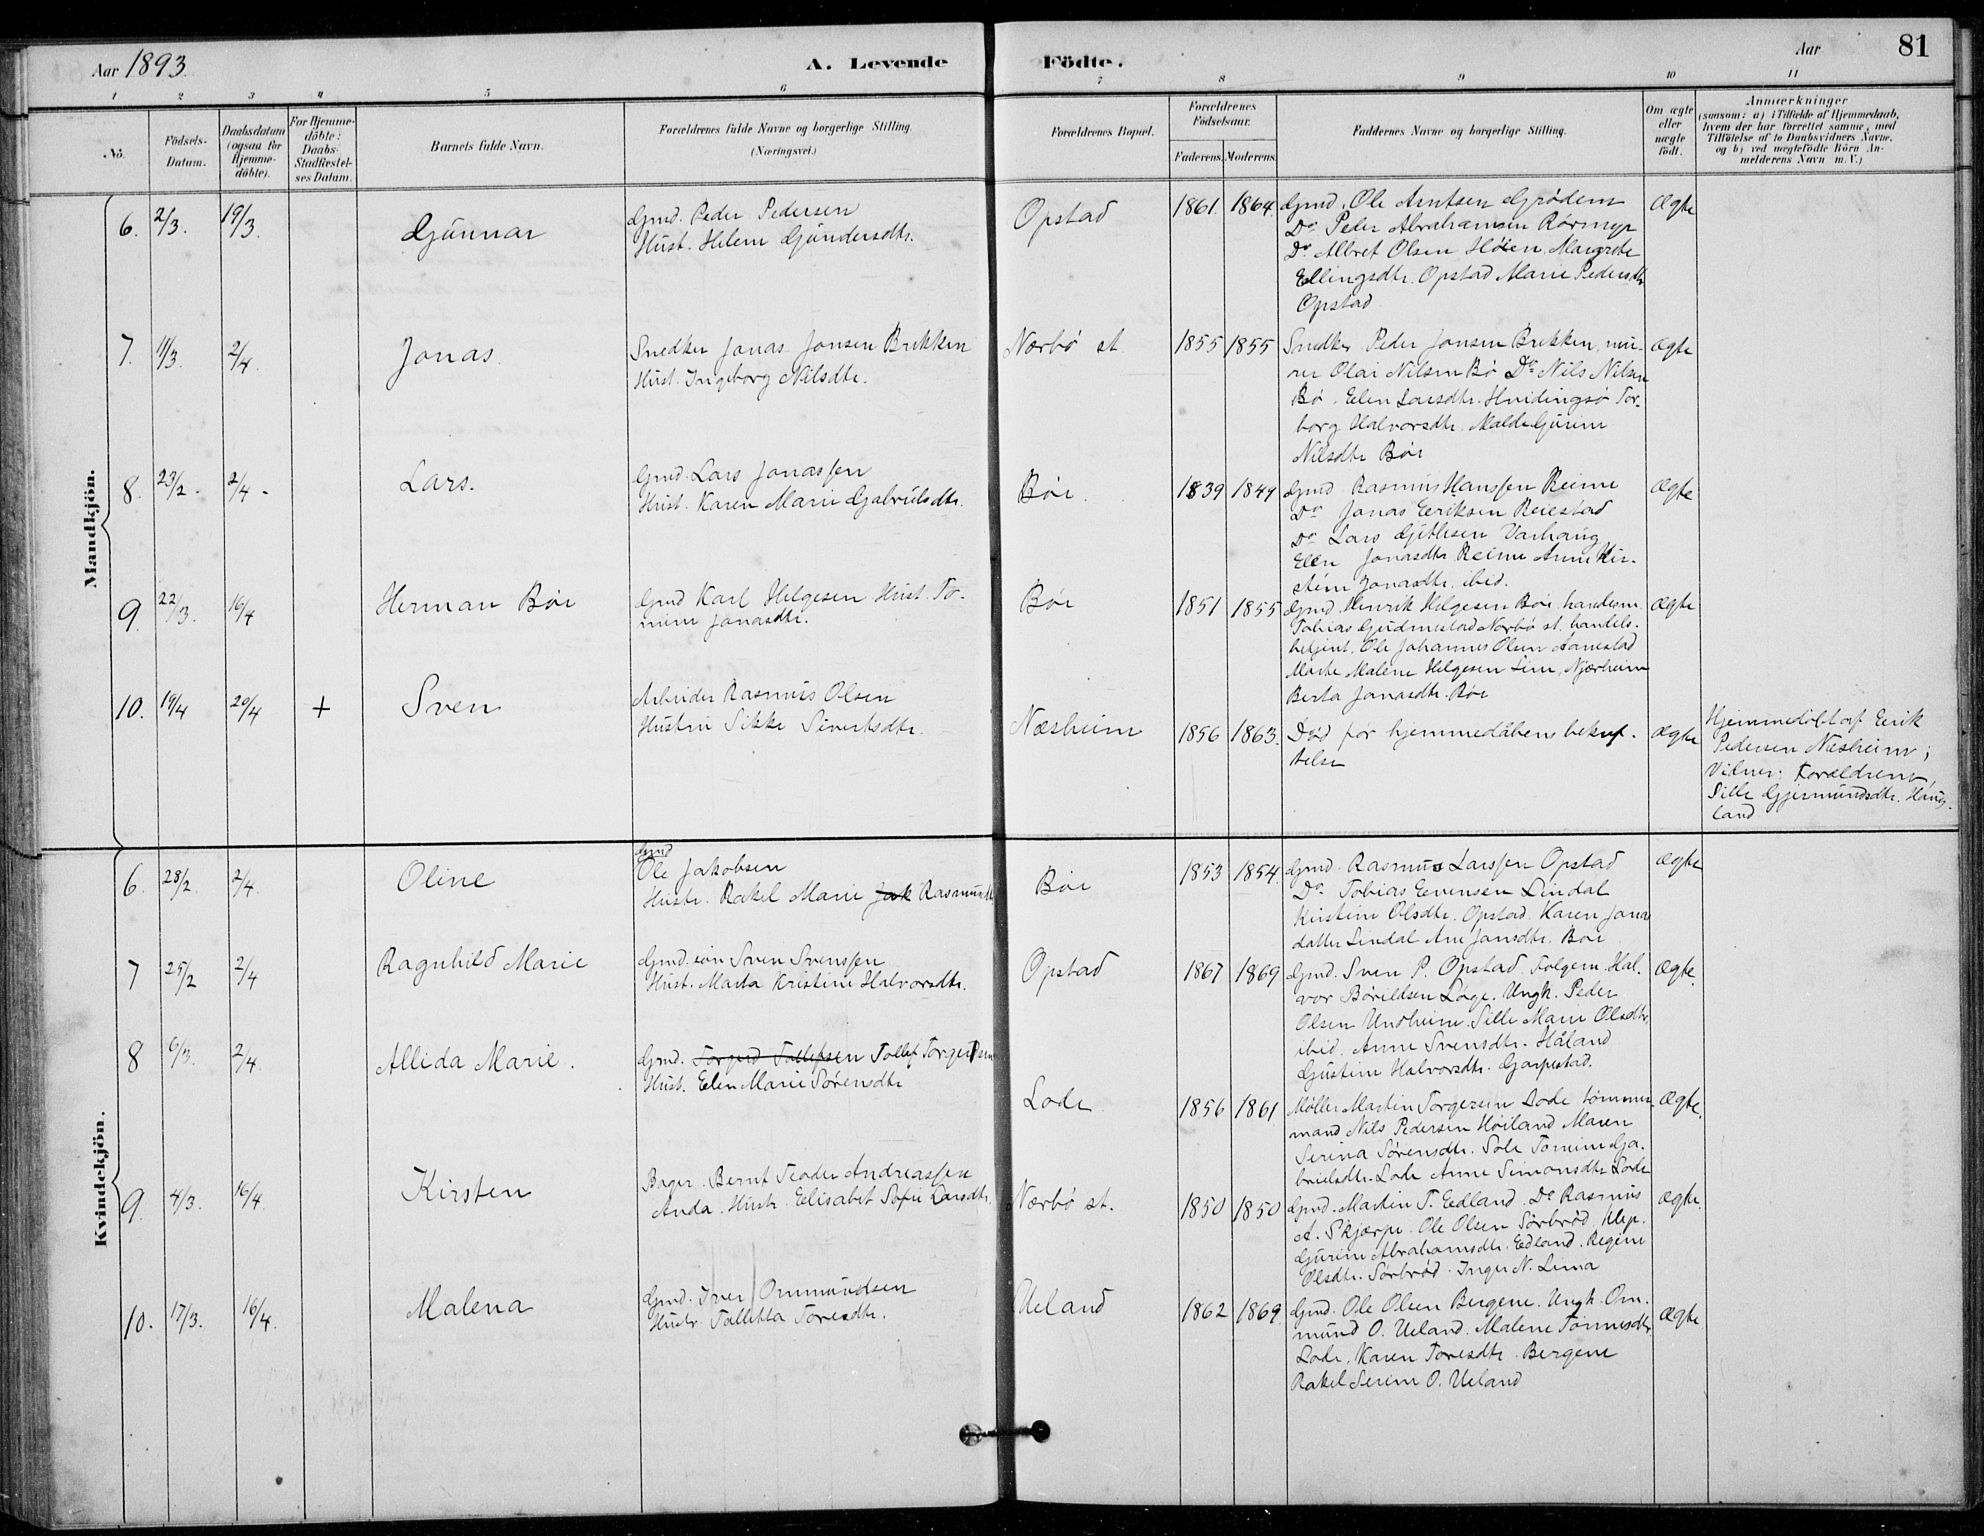 Aar 1893.
A. Levende Födte.
Aar
81
1 2 3 4 5 6 7 8 9 10 11
No.
Födsels-
Datum.
Daabsdatum
(ogsaa for
Hjemme-
döbte).
For Hjemme-
döbte:
Daabs-
Stadfæstel-
ses Datum.
Barnets fulde Navn.
Forældrenes fulde Navne og borgerlige Stilling.
(Næringsvei.)
Forældrenes Bopæl.
Forældrenes
Födselsaar.
Faderens. Moderens.
Faddernes Navne og borgerlige Stilling.
Om ægte
eller
uægte
födt.
Anmærkninger
(saasom: a) i Tilfælde af Hjemmedaab,
hvem der har forrettet samme, med
Tilföielse af to Daabsvidners Navne,
og b) ved uægtefödte Börn An-
melderens Navn m. V.)
Mandkjön.
6. 2/3. 19/3. Gunnar
Gmd. Peder Pedersen
Hust. Helene Gundersdtr.
Opstad 1861. 1864.
Gmd. Ole Arntsen Grødem
Do Peder Abrahamsen Rørmyr
Do Albret Olsen Høien. Margrete
Ellingsdtr. Opstad Marie Pedersdtr
Opstad
Ægte
7. 11/3. 2/4. Jonas.
Snedker Jonas Jonsen Brekken
Hust. Ingeborg Nilsdtr.
Nærbø st 1855 1855
Snedker Peder Jonsen Brekken, mu-
rer Olai Nilsen Bø Do Nils Nilsen
Bø. Elen Larsdtr. Hvidingsø Tor-
borg Halvorsdtr. Malde Gurine
Nilsdtr Bør
Ægte
8. 23/2. 2/4. Lars.
Gmd. Lars Jonassen
Hust. Karen Marie Gabrielsdtr.
Bør. 1839 1849
Gmd Rasmus Hanssen Reime
Do Jonas Eeriksen Reiestad
Do Lars Gitlesen Varhaug
Elen Jonasdtr Reime Anne Kir-
stine Jonasdtr. ibid.
Ægte
9. 22/3. 16/4 Herman Bør
Gmd Karl Helgesen Hust. To-
nine Jonasdtr.
Bør 1851 1855
Gmd. Henrik Helgesen Bør, handesm.
Tobias Gudmestad Nærbø st. handels-
betjent. Ole Johannes Olsen Aanestad
Marte Malene Helgesen Line, Njærheim
Berta Jonasdtr. Bør
Ægte
10. 19/4 20/4 + Sven
Arbeider Rasmus Olsen
Hustru Sikke Sivertsdtr.
Næsheim 1856 1863.
Død før hjemmedåbens bekræf-
telse
Ægte
Hjemmedøbt af Eerik
Pedersen Næsheim;
Vidner: Forældrene,
Sille Gjermundsdtr. Haug-
land
Kvindekjön.
6. 28/2. 2/4. Oline
Gmd
Ole Jakobsen
Hustr. Rakel Marie Jak Rasmusdtr
Bør 1853 1854.
Gmd. Rasmus Larssen Opstad
Do Tobias Eevensen Lindal
Kirstine Olsdtr. Opstad. Karen Jona
datter Lindal Ane Jansdtr. Bør
Ægte
7 25/2 2/4 Ragnhild Marie
Gmd. søn Sven Svenssen
Hust. Marta Kristine Halvorsdtr.
Opstad 1867 1869
Gmd. Sven P. Opstad. Folgem. Hal-
vor Børildsen Låge. Ungk. Peder
Olsen Undheim. Sille Marie Olsdtr.
ibid. Anne Svensdtr. Håland
Gustine Halvorsdtr. Garpestad.
Ægte.
8 6/3. 2/4. Allida Marie.
Gmd. Torger Tollefsen Tollef Torgersen
Hust. Elen Marie Sørensdtr
Lode 1856 1861
Møller Martin Torgersen Lode tømmer
mand Nils Pedersen Høiland Maren
Serina Sørensdtr. Sole Tonine Ga-
brielsdtr. Lode Anne Simonsdtr Lode
Ægte.
9. 4/3. 16/4. Kirsten
Bager. Bernt Teodor Andreassen
Anda. Hustr. Eelisabet Sofie Larsdtr.
Nærbø st. 1850 1850
Gmd. Martin T. Eedland. Do Rasmus
A. Skjærpe. Ole Olsen Sørbrød, Klep.
Gurine Abrahamsdtr. Eedland. Regine
Olsdtr. Sørbrød. Inger N. Lima
Ægte.
10. 17/3. 16/4. Malena
Gmd. Iver Ommundsen
Hustr. Talletta Toresdtr.
Ueland 1862 1869.
Gmd. Ole Olsen Bergene. Ungk. Om-
mund O. Ueland. Malene Tønnesdtr
Lode. Karen Toresdtr. Bergene
Rakel Serine O. Ueland
Ægte